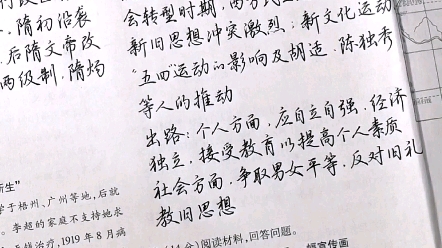 隋初沿袭
后隋文帝改
两级制，隋炀
会转型时期，
新旧思想冲突激烈；新文化运动
"五四"运动的影响及胡适、陈独秀
等人的推动
出路：个人方面，应自立自强、经济
独立，接受教育以提高个人素质
社会方面，争取男女平等，反对旧礼
教旧思想
新生"
学于梧州、广州等地，后就
李超的家庭不支持她求
1919年8月病
分）阅读材料，回答问题。